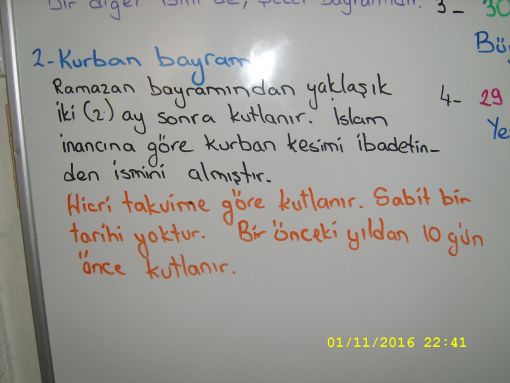 Bir diğer ismi de, Şeker bayramıdır.
3- 30
Bü
2-Kurban bayram
Ramazan bayramından yaklaşık
iki (2) ay sonra kutlanır. İslam
inancına göre kurban kesimi ibadetin-
den ismini almıştır.
4- 29
Ye
Hicri takvime göre kutlanır. Sabit bir
tarihi yoktur. Bir önceki yıldan 10 gün
önce kutlanır.
01/11/2016 22:41